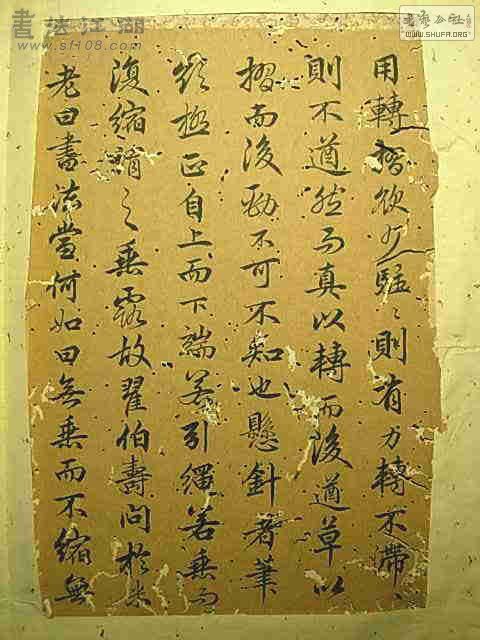 書法江湖
www.sf108.com
书艺公社
WWW.SHUFA.ORG
用轉摺欲少駐〻則有力轉不滯〻
則不遒然而真以轉而後遒草以
摺而後勁不可不知也懸針者筆
欲極正自上而下端若引繩若垂而
復縮謂之垂露故翟伯壽問於米
老曰書法當何如曰無垂而不縮無